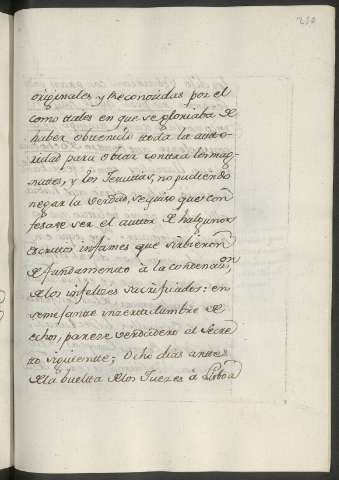 originales y Reconocidas por el
como tales en que se gloriaba de
haber obtenido toda la auto-
ridad para obrar contra los mag-
nates, y los Jesuitas, no pudiendo
negar la verdad, se quiso que con
fesase ser el auttor de halgunos
escritos infames que sirbieron
de fundamento à la condenaon,
de los infelizes sacrificados: en
semejante incertidumbre de
echos, parece verdadero el secre
to siguiente; Ocho dias anttes
de la buelta de los Juezes à Lisboa